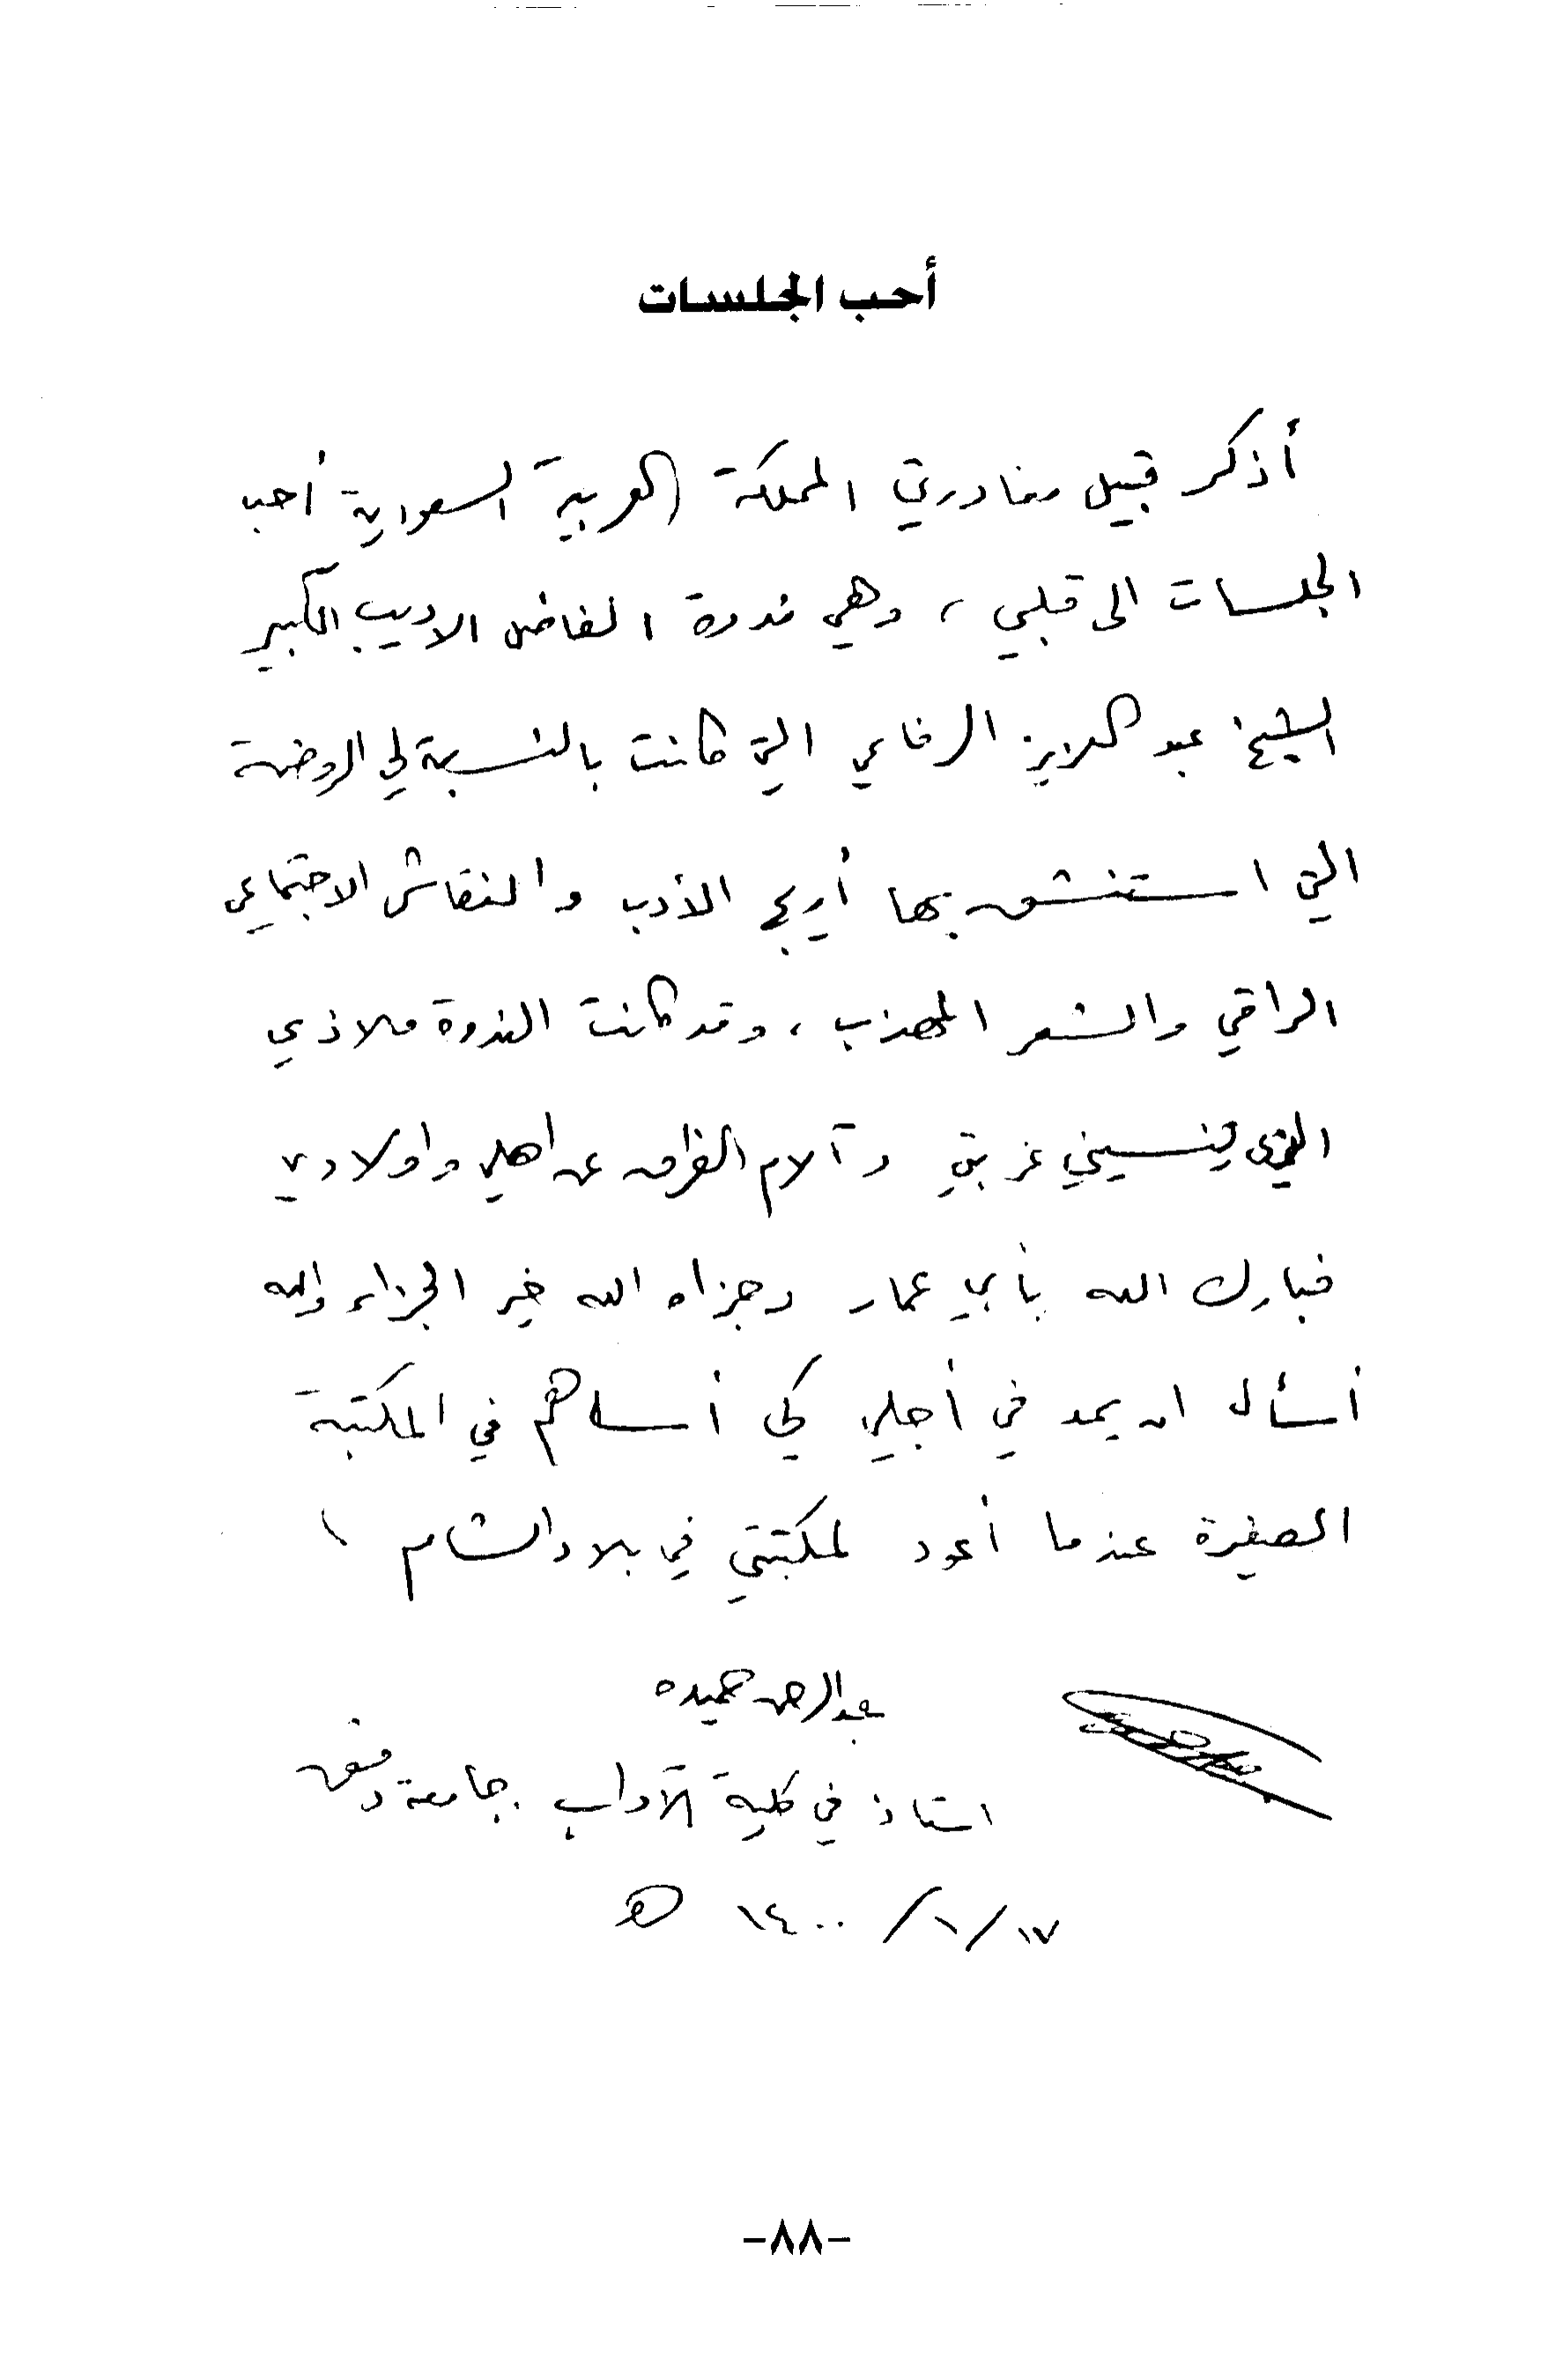 أحب الجلسات
أذكر قبيل مغادرتي المملكة العربية السعودية أحب
الجلسات الى قلبي ، وهي ندوة الفاضل الاديب الكبير
الشيخ عبد العزيز الرفاعي التي كانت بالنسبة لي الروضة
التي استنشق بها أريج الأدب والنقاش الاجتماعي
الراقي والشعر المهذب ، وقد كانت الندوة ملاذي
الذي ينسيني غربتي وآلام الفراق عن اهلي واولادي
فبارك الله بأبي عمار وجزاه الله خير الجزاء والله
أسأل ان يمد في أجلي كي أساهم في المكتبة
الصغيرة عندما أعود لمكتبتي في بلاد الشام
عبد الرحمن حميده
استاذ في كلية الآداب . جامعة دمشق
١٧/ ١/ ١٤٠٠ ه
-٨٨-